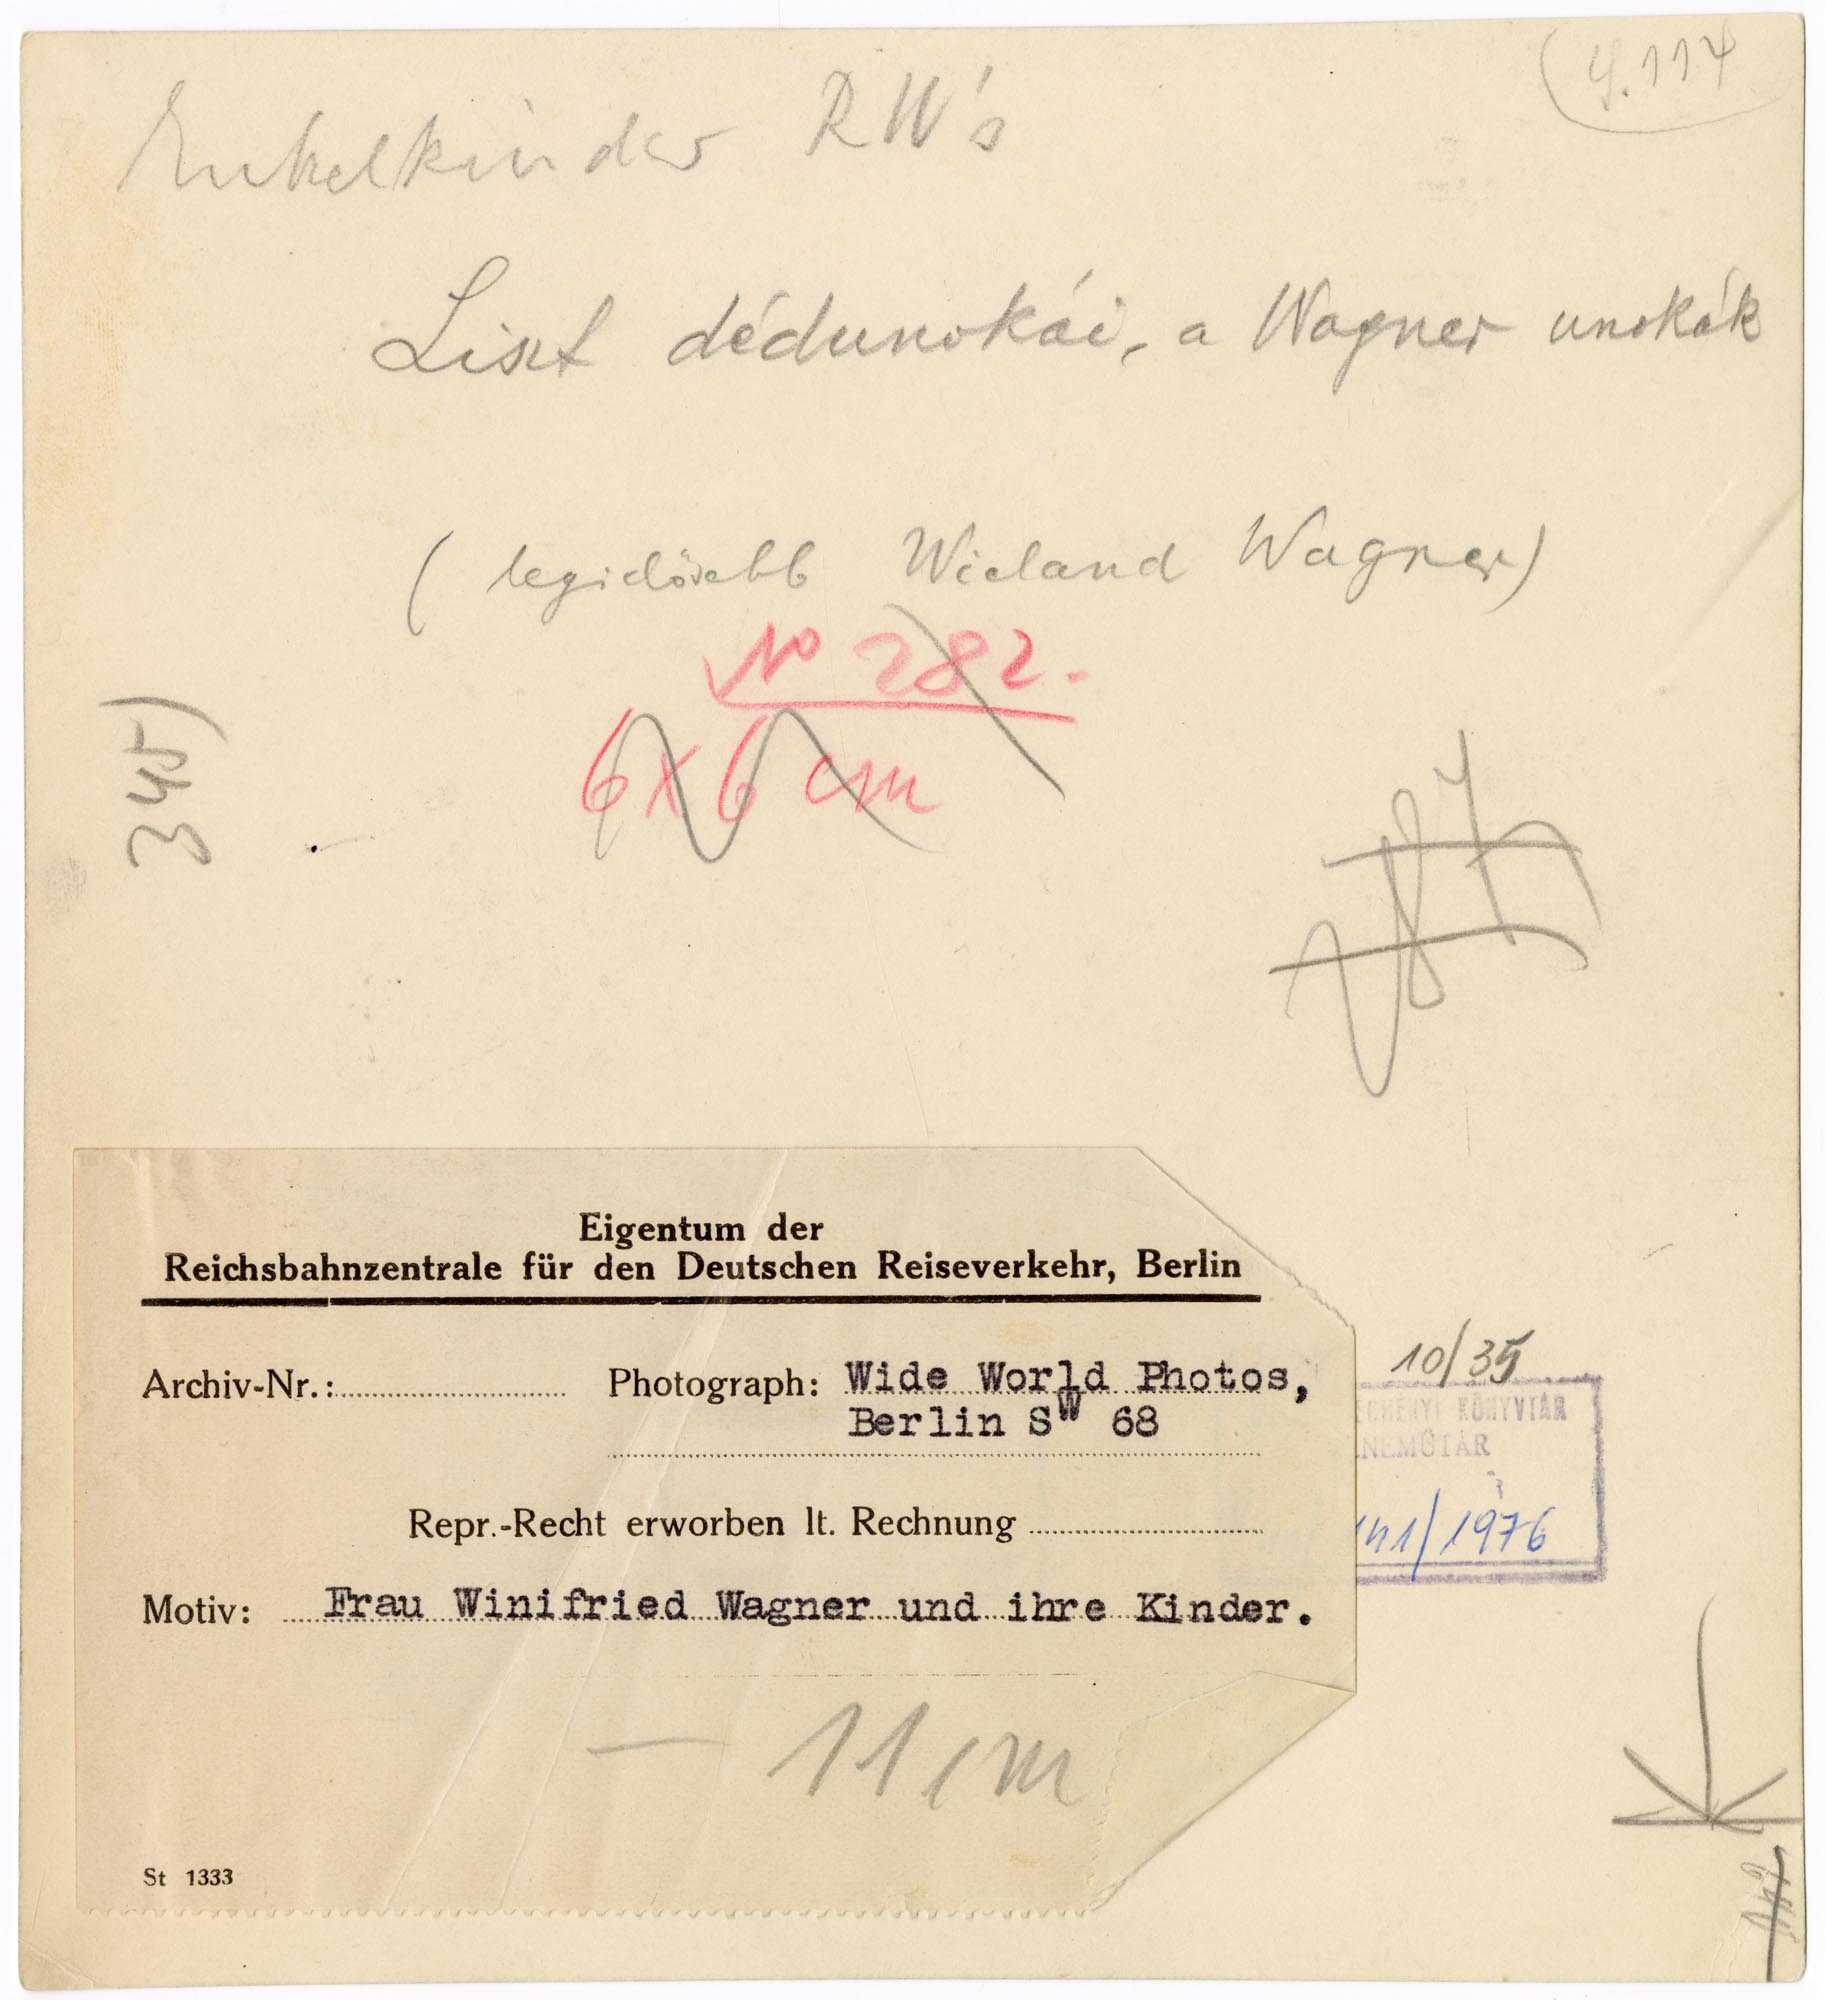 (4.114
Enkelkinder RW's
Liszt dédunokái, a Wagner unokák
(legidősebb Wieland Wagner)
No 282.
6x6 cm
345)
Eigentum der
Reichsbahnzentrale für den Deutschen Reiseverkehr, Berlin
Archiv-Nr.: Photograph: Wide World Photos,
Berlin SW 68
10/35
ECHÉNYI KÖNYVTÁR
NEMŰTÁR
141/1976
Repr.-Recht erworben lt. Rechnung
Motiv: Frau Winifried Wagner und ihre Kinder.
— 11 cm
St 1333